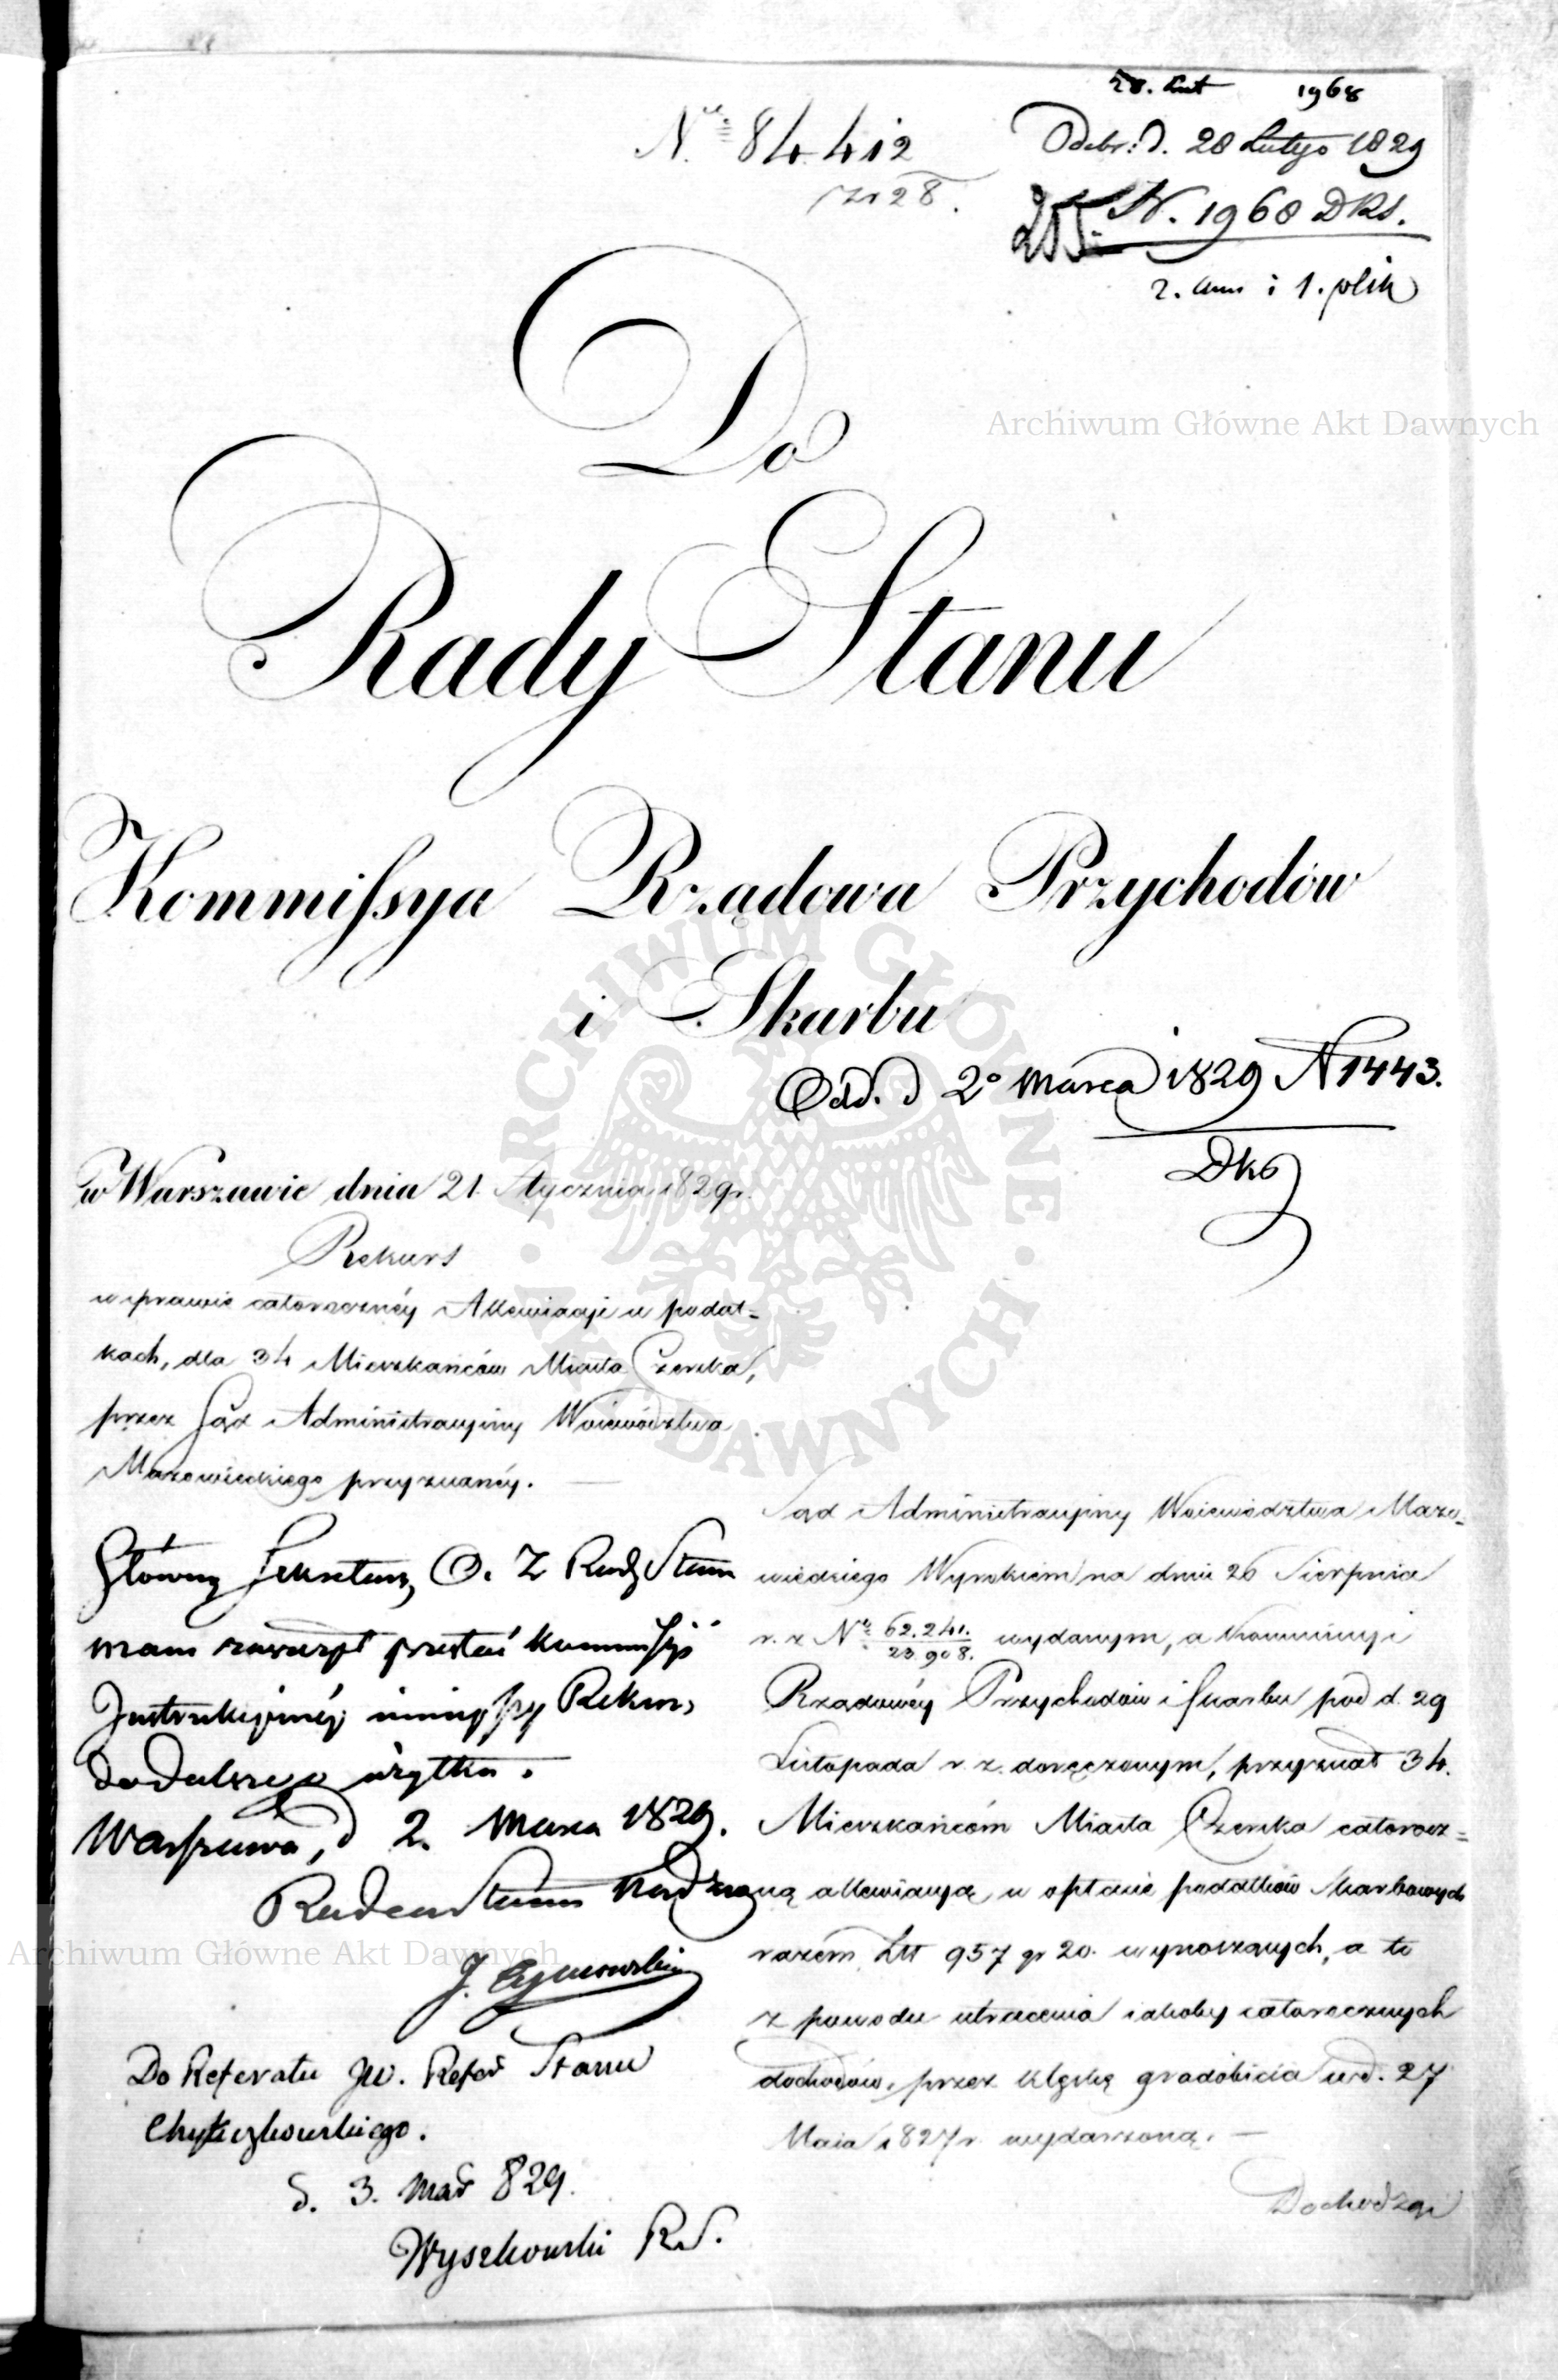 28. Lut 1968
Odebr: d. 28 Lutego 1829
N. 1968 DKS.
2. ann i 1. plik
N. 84412
z r 28.
Do
Rady Stanu
Kommissya Rządowa Przychodów
i Skarbu
Odd. d 2º Marca 1829 N 1443.
Dks
w Warszawie dnia 21. Stycznia 1829 r.
Rekurs
w sprawie całoroczney Allewiacyi w podat=
kach, dla 34 Mieszkańców Miasta Czerska,
przez Sąd Administracyiny Woiewództwa
Mazowieckiego przyznanéy.
Główny Sekretarz, O. Z Rady Stanu
mam zaszczyt przesłać Kommissyi
Instrukcyinéy ninieyszy Rekurs
do dalszego użytku.
Warszawa, d 2. Marca 1829.
Radca Stanu Nadzwy
J.
Do Referatu JW. Refer Stanu
d. 3. Mar 829.
Wyszkowski R.S.
Sąd Administracyiny Woiewództwa Mazo=
wieckiego Wyrokiem na dniu 26 Sierpnia
r. z N 62.241. / 23.908. wydanym, a Kommissyi
Rządowéy Przychodów i Skarbu pod d. 29
Listopada r. z. doręczonym, przyznał 34.
Mieszkańcom Miasta Czerska całorocz=
ną allewiacyą w opłacie podatków skarbowych
razem Złt 957 gr 20. wynoszących, a to
z powodu utracenia iakoby całorocznych
dochodów, przez klęskę gradobicia w d. 27
Maia 1827 r. wydarzoną. —
Dochodząc
Archiwum Główne Akt Dawnych
Archiwum Główne Akt Dawnych
ARCHIWUM GŁÓWNE AKT DAWNYCH